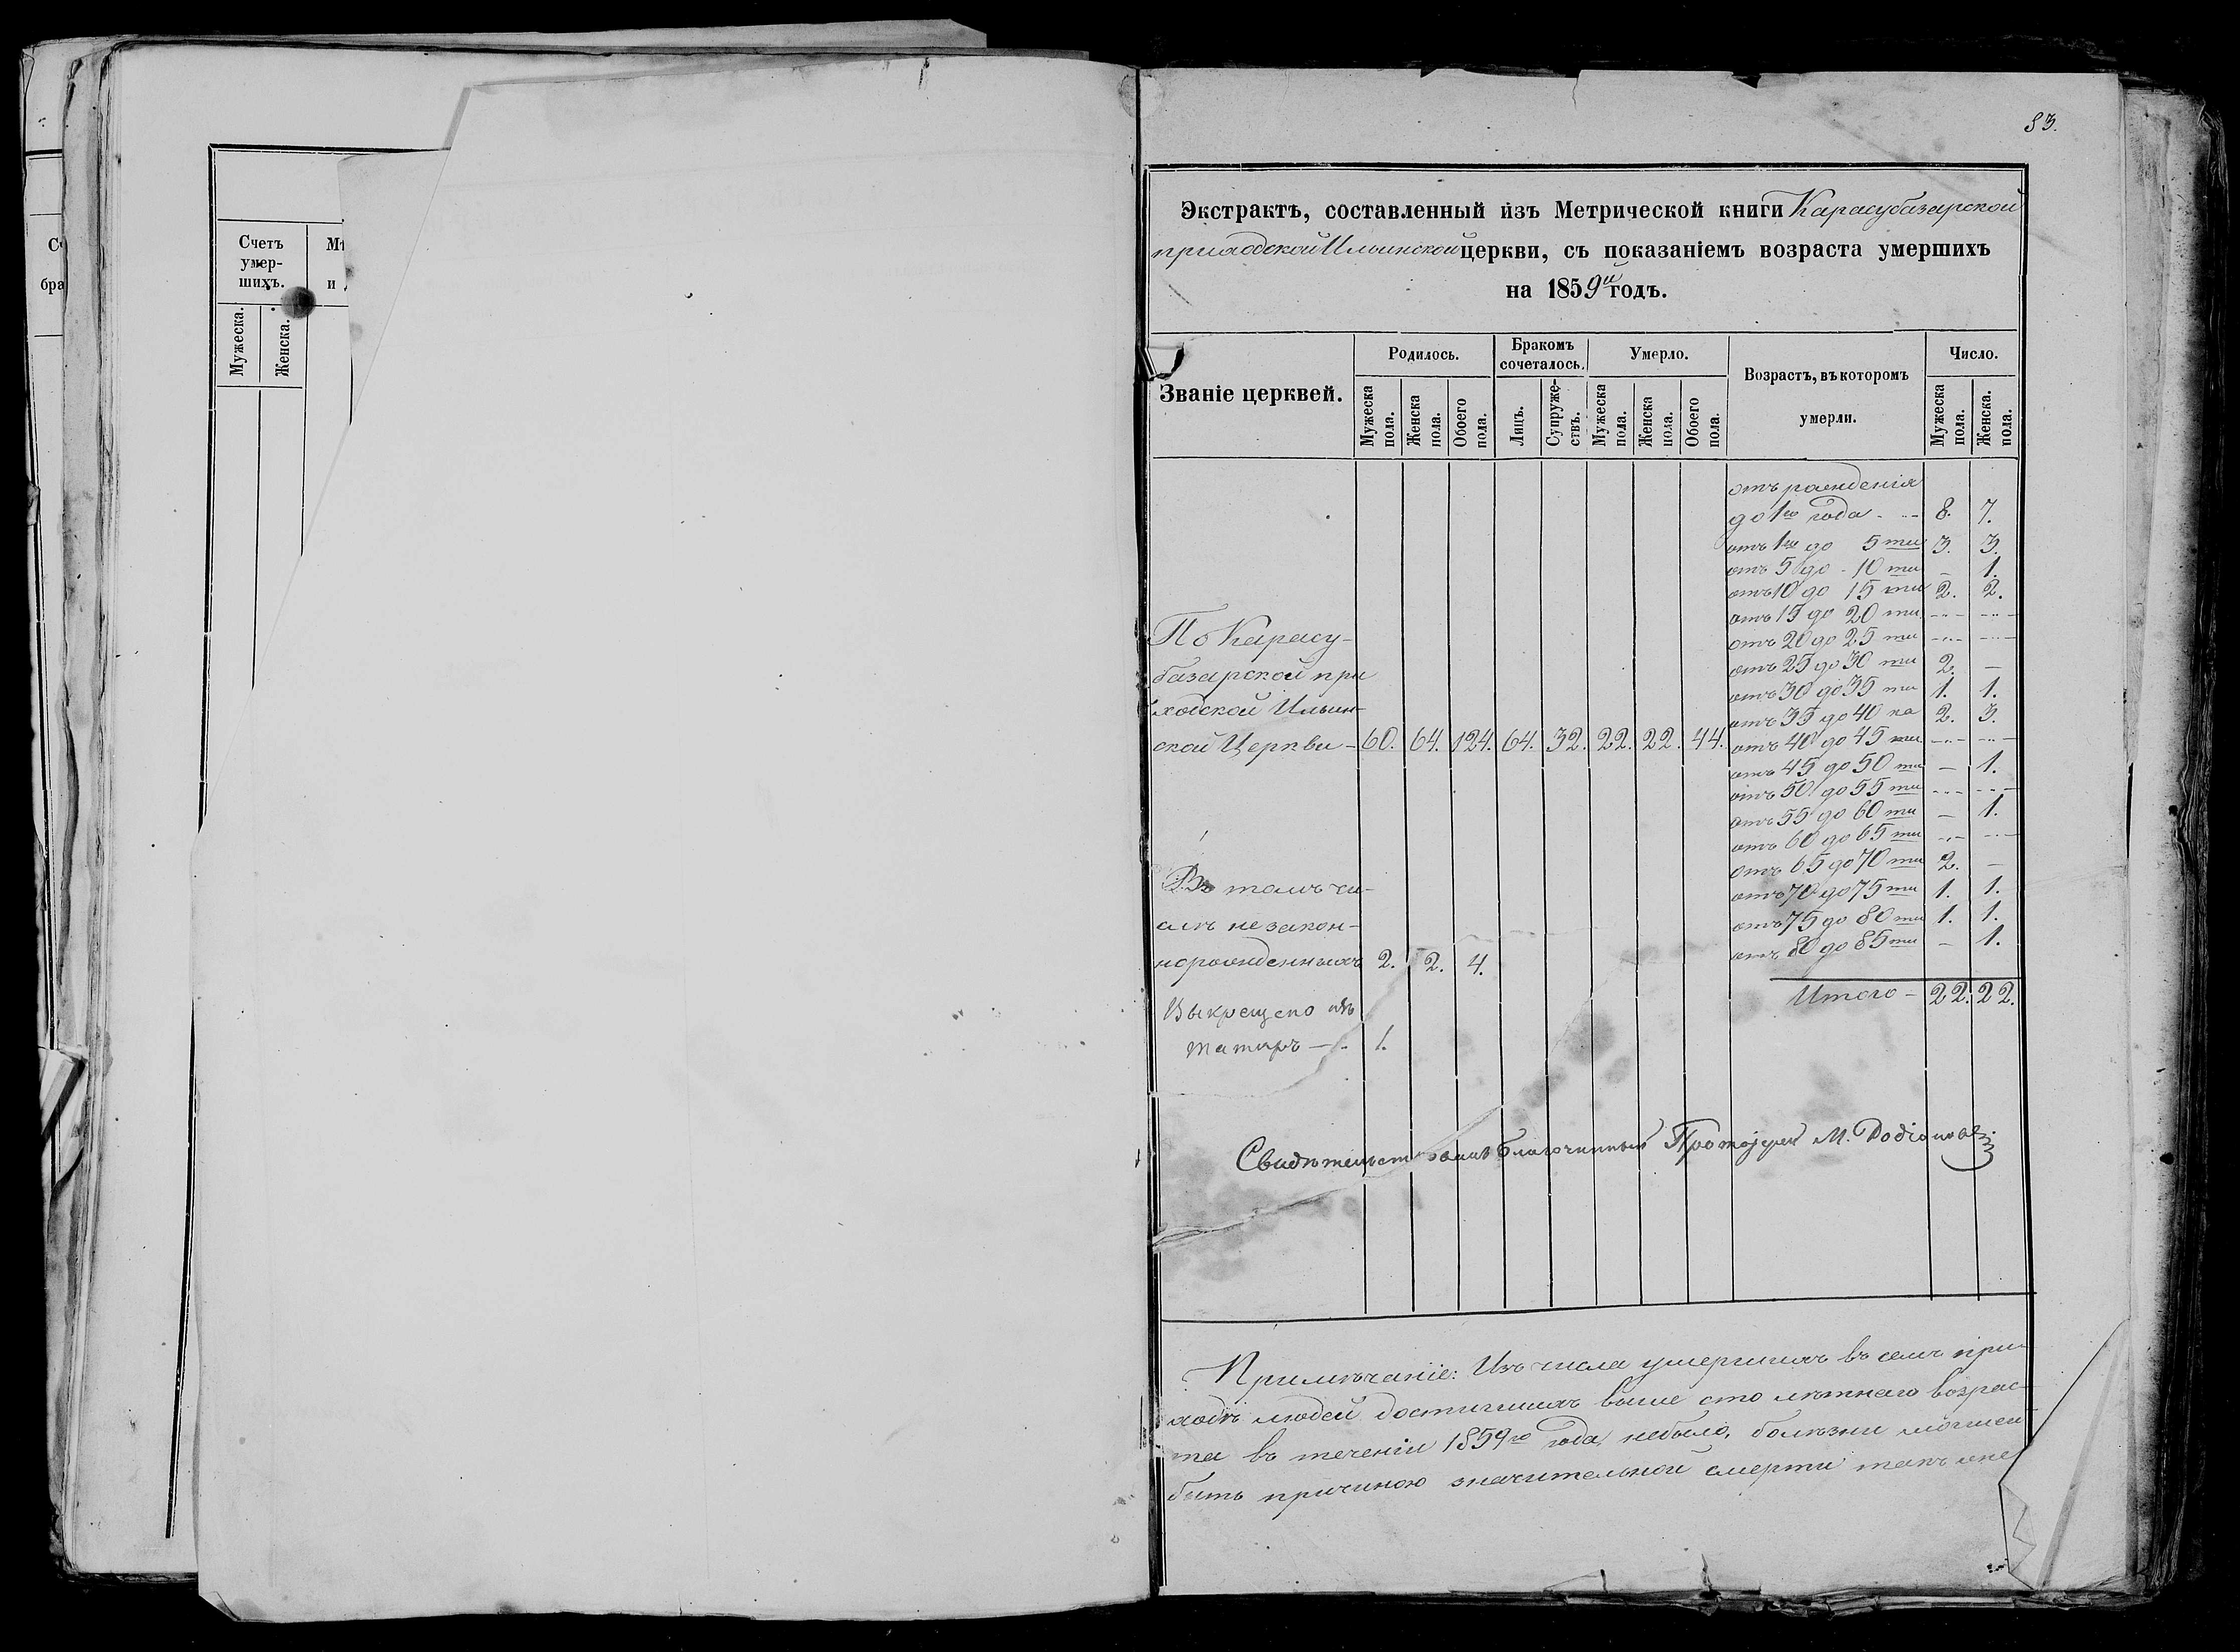 Счетъ
умер-
шихъ.
Мужеска.
Женска.
бра
и
83.
Экстрактъ, составленный изъ Метрической книги Карасубазарской
приходской Ильинской церкви, съ показаніемъ возраста умершихъ
на 1859й годъ.
Званіе церквей.
Родилось.
Бракомъ сочеталось.
Умерло.
Возрастъ, въ которомъ умерли.
Число.
Мужеска пола.
Женска пола.
Обоего пола.
Лицъ.
Супруже-ствъ.
Мужеска пола.
Женска пола.
Обоего пола.
Мужеска пола.
Женска. пола.
отъ рожденія
до 1го года - 8. 7.
отъ 1го до 5ти 3. 3.
отъ 5 до 10ти - 1.
отъ 10 до 15ти 2. 2.
отъ 15 до 20ти - -
отъ 20 до 25ти - -
отъ 25 до 30ти 2. -
отъ 30 до 35ти 1. 1.
отъ 35 до 40ка 2. 3.
отъ 40 до 45ти - -
отъ 45 до 50ти - 1.
отъ 50 до 55ти - -
отъ 55 до 60ти - 1.
отъ 60 до 65ти - -
отъ 65 до 70ти 2. -
отъ 70 до 75ти 1. 1.
отъ 75 до 80ти 1. 1.
отъ 80 до 85ти - 1.
Итого - 22. 22.
По Карасу-
базарской при
ходской Ильин-
ской Церкви - 60. 64. 124. 64. 32. 22. 22. 44.
Въ томъ чи-
слѣ незакон-
норожденныхъ 2. 2. 4.
Выкрещено изъ
татаръ - 1.
Свидѣтельствовалъ Благочинный Протоіерей М. Родіоновъ
Примѣчаніе: Изъ числа умершихъ въ семъ при-
ходѣ людей достигшихъ выше сто лѣтняго возрас-
та въ теченіи 1859го года, небыло, болѣзни могшей
быть причиною значительной смерти такъ же